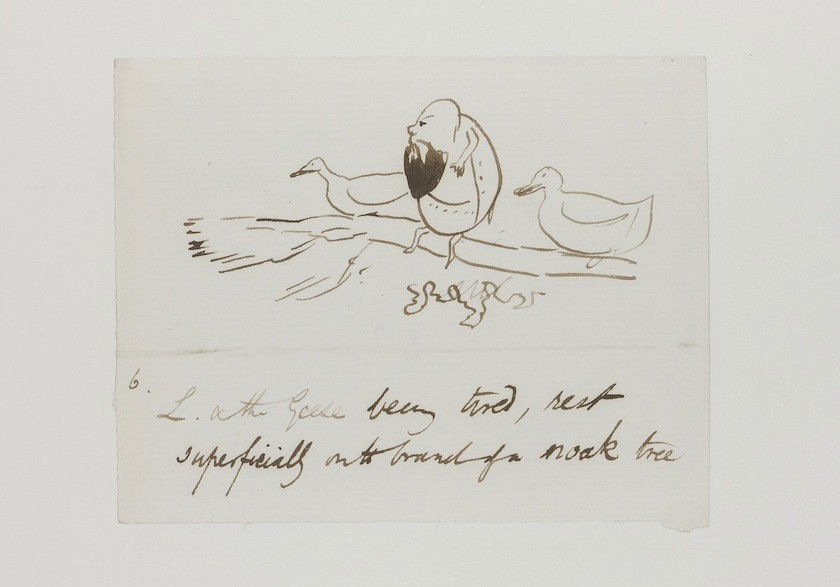 6.
L. & the Geese being tired, rest
superficially on the branch of a noak tree